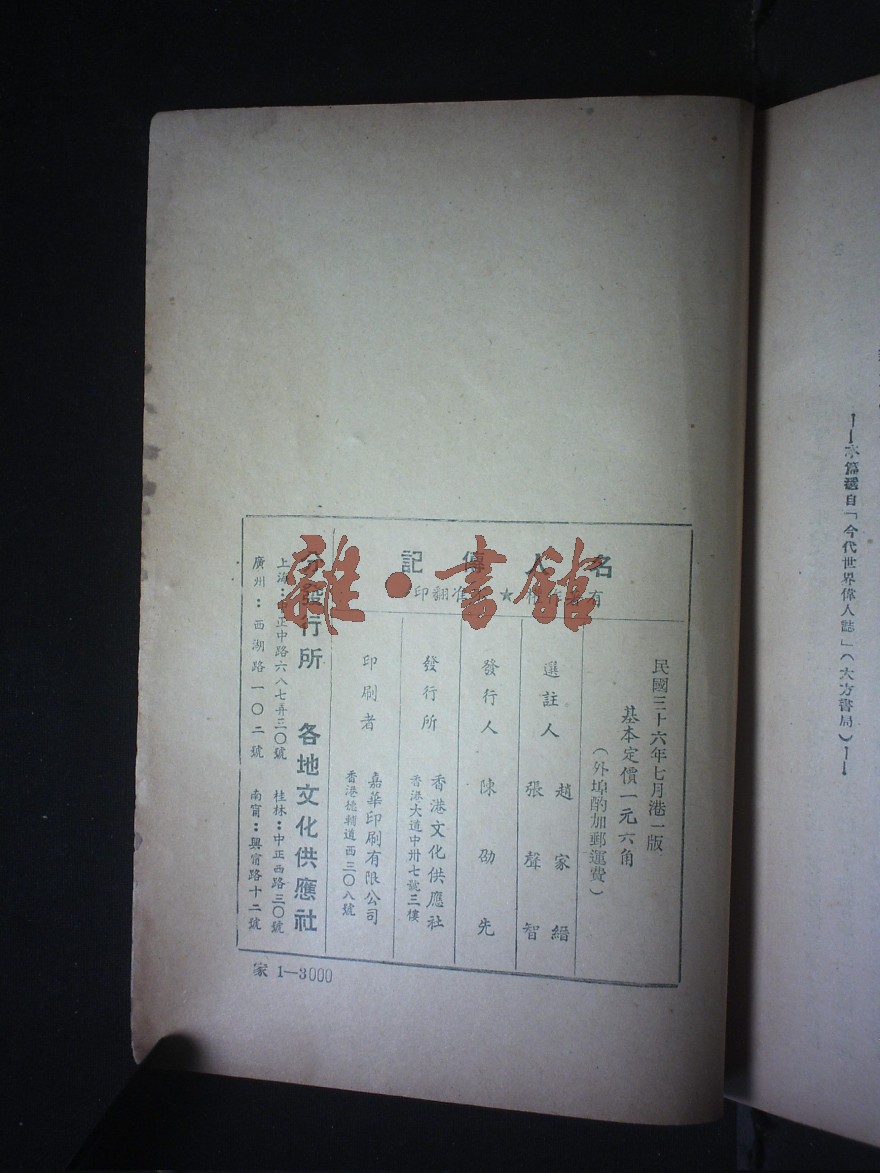 ——本篇選自「今代世界偉人誌」(大方書局)——
名人傳記
有著作權★不准翻印
民國三十六年七月港一版
基本定價一元六角
(外埠酌加郵運費)
選註人 趙家縉
張聲智
發行人 陳劭先
發行所 香港文化供應社
香港大道中卅七號三樓
印刷者 嘉華印刷有限公司
香港德輔道西三〇八號
分發行所 各地文化供應社
上海:中正中路六八七弄三〇號 桂林:中正西路三〇號
廣州:西湖路一〇二號 南甯:興甯路十二號
家 1—3000
雜·書館